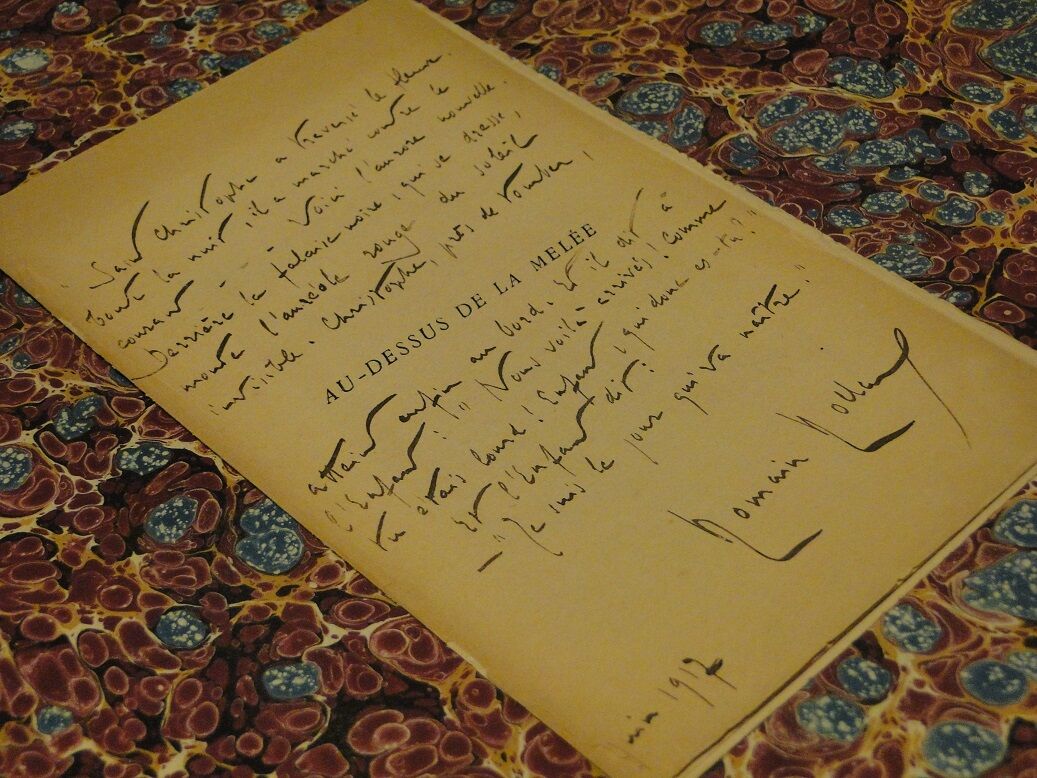 " Saint Christophe a traversé le fleuve.
Toute la nuit, il a marché contre le
courant. - Voici l'aurore nouvelle.
Derrière la falaise noire, qui se dresse,
monte l'auréole rouge du soleil
invisible. Christophe, près de tomber,
AU-DESSUS DE LA MELÉE
atteint enfin au bord. Et il dit à
l'Enfant : " Nous voilà arrivés ! Comme
tu étais lourd ! Enfant, qui donc es-tu ? "
Et l'Enfant dit :
- " Je suis le jour qui va naître. "
Romain Rolland
1917